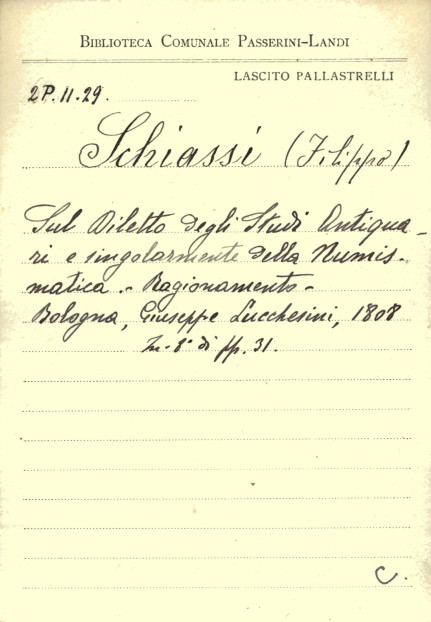 BIBLIOTECA COMUNALE PASSERINI-LANDI
LASCITO PALLASTRELLI
2P.11.29.
Schiassi (Filippo)
Sul Diletto degli Studi Antiqua-
ri e singolarmente della Numis-
matica.- Ragionamento-
Bologna, Giuseppe Lucchesini, 1808
In-8° di pp. 31.
C.